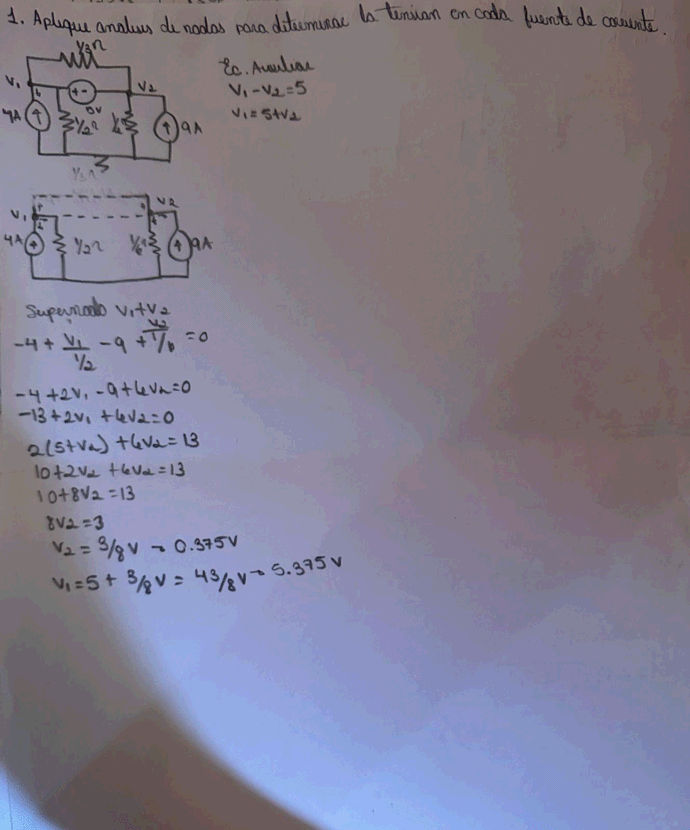 1. Aplique analisis de nodos para determinar la tension en cada fuente de corriente.
1/3Ω
V1
+ -
V2
5V
4A
1/2Ω
1/6
9A
1/3Ω
Ec. Auxiliar
V1-V2=5
V1=5+V2
V2
V1
4A
1/2Ω
1/6
9A
Supernodo V1+V2
-4 + V1/1/2 - 9 + V2/1/6 = 0
-4+2V1-9+6V2=0
-13+2V1+6V2=0
2(5+V2)+6V2=13
10+2V2+6V2=13
10+8V2=13
8V2=3
V2=3/8V → 0.375V
V1=5+3/8V=43/8V→5.375V